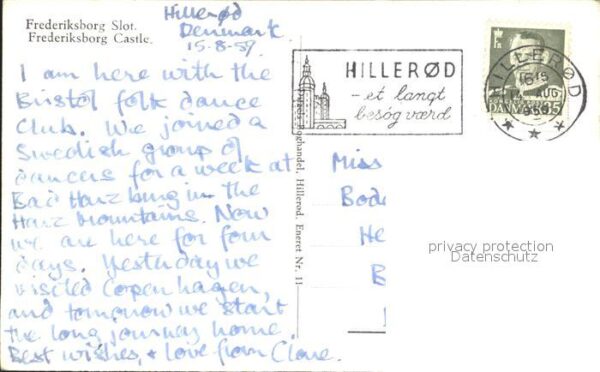 Frederiksborg Slot.
Frederiksborg Castle.
Hillerød
Denmark.
15-8-59.
I am here with the
Bristol folk dance
Club. We joined a
Swedish group of
dancers for a week at
Bad Harzburg in the
Harz Mountains. Now
we are here for four
days. Yesterday we
visited Copenhagen,
and tomorrow we start
the long journey home.
Best wishes, + love from Clare.
HILLERØD
- et langt
besøg værd
HILLERØD
AUG
DANMARK
Boghandel, Hillerød. Eneret Nr. 11
Miss
Bod
He
B
privacy protection
Datenschutz